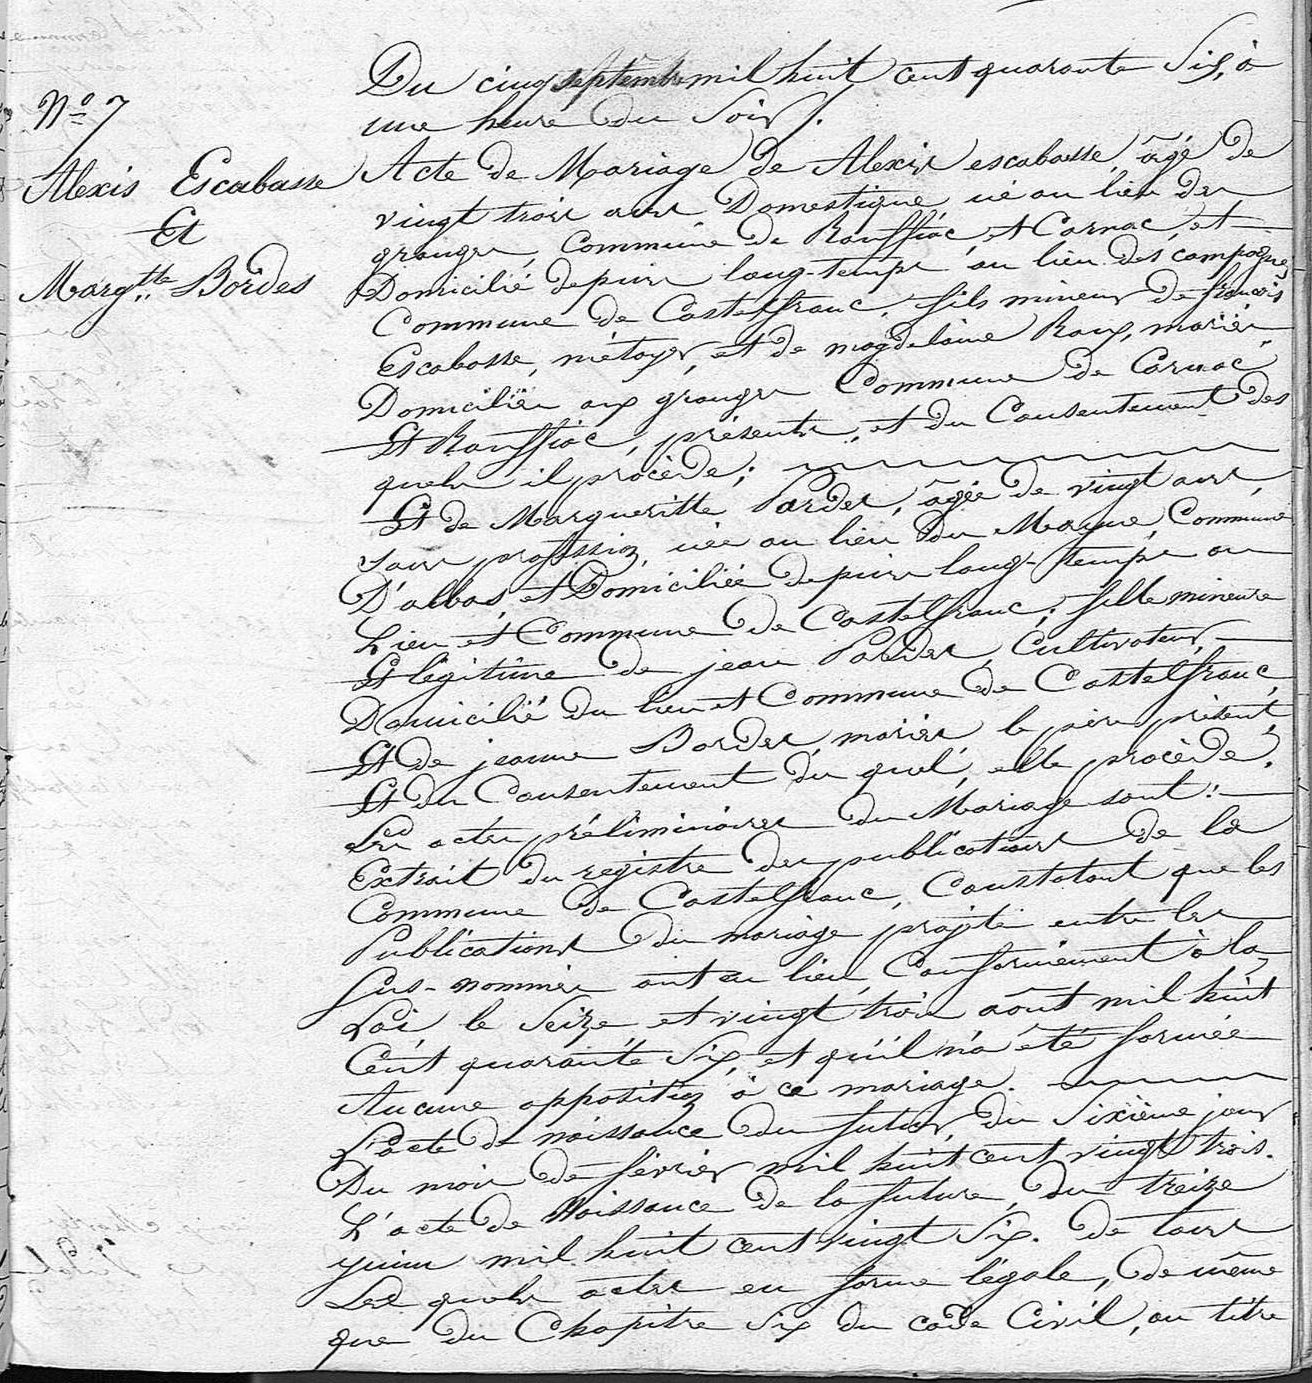 N° 7
Alexis Escabasse
Et
Marg.tte Bordes
Du cinq septembre mil huit cent quarante Six, à
une heure du Soir.
Acte de Mariage de Alexis escabasse, âgé de
vingt trois ans Domestique né au lieu des
granges, Commune de Rouffiac et Carnac, et
Domicilié depuis long-temps au lieu des campagnes
Commune de Castelfranc, fils mineur de françois
Escabasse, métayer, et de magdelaine Roux, mariés
Domiciliés aux granges Commune de Carnac
Et Rouffiac, présents, et du Consentement des
quels il procède;
Et de Margueritte Bordes, âgée de vingt ans,
sans profession, née au lieu du Mayne, Commune
D'albas, et Domiciliée depuis long-temps au
Lieu et Commune de Castelfranc; fille mineure
Et légitime de jean Bordes, Cultivateur,
Domicilié du lieu et Commune de Castelfranc,
Et de jeanne Bordes, mariés le père présent,
Et du Consentement du quel, elle procède.
Les actes préliminaires du Mariage sont:
Extrait du registre des publications de la
Commune de Castelfranc, Constatant que les
Publications du mariage projeté entre les
Sus-nommés ont eu lieu, Conformément à la
Loi le Seize et vingt trois août mil huit
Cent quarante Six, et qu'il n'a été formée
Aucune opposition à ce mariage.
L'acte de naissance du futur, du Sixième jour
Du mois de février mil huit cent vingt trois.
L'acte de Naissance de la future, du treize
juin mil huit cent vingt Six. De tous
Les quels actes en forme légale, de même
que du Chapitre Six du code Civil, au titre